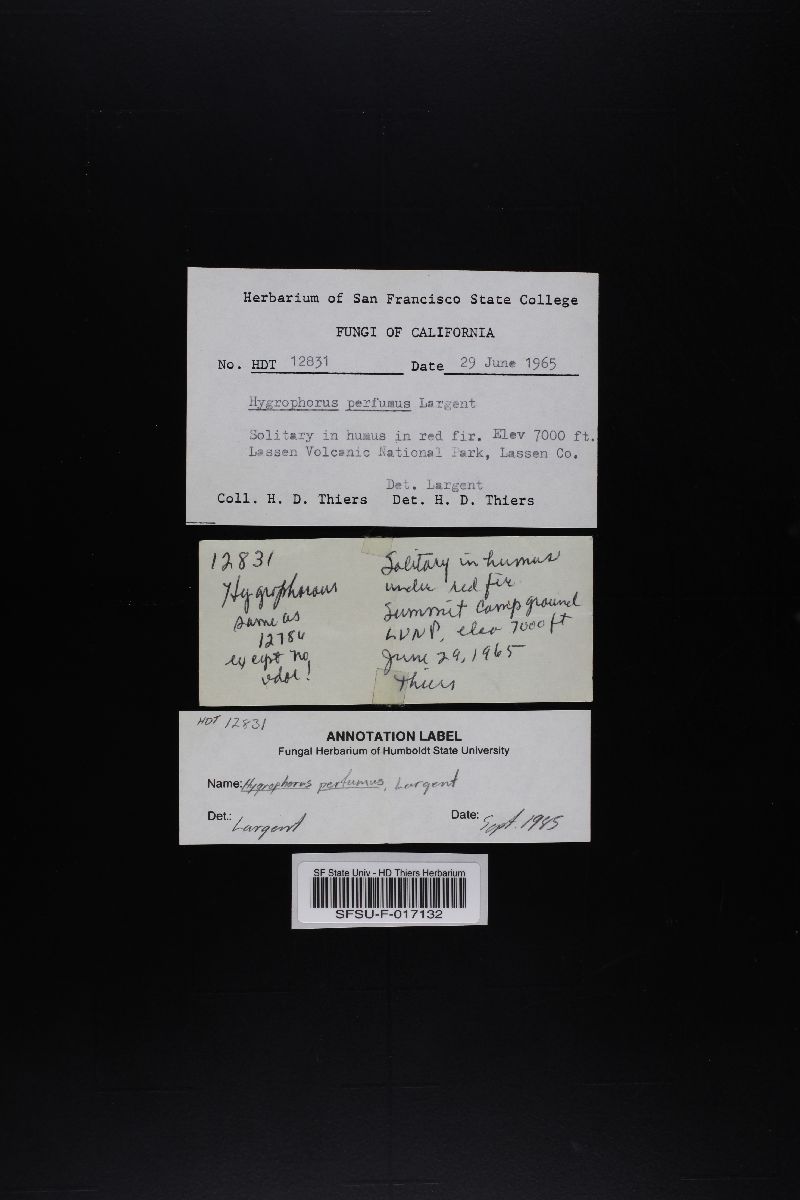 Herbarium of San Francisco State College
FUNGI OF CALIFORNIA
No. HDT 12831 Date 29 June 1965
Hygrophorus perfumus Largent
Solitary in humus in red fir. Elev 7000 ft.
Lassen Volcanic National Park, Lassen Co.
Det. Largent
Coll. H. D. Thiers Det. H. D. Thiers
12831
Hygrophorous
same as
12786
except no
odor!
Solitary in humus
under red fir
Summit Campground
LVNP, elev 7000 ft
June 29, 1965
Thiers
HDT 12831
ANNOTATION LABEL
Fungal Herbarium of Humboldt State University
Name: Hygrophorus perfumus, Largent
Det.: Largent Date: Sept. 1985
SF State Univ - HD Thiers Herbarium
SFSU-F-017132